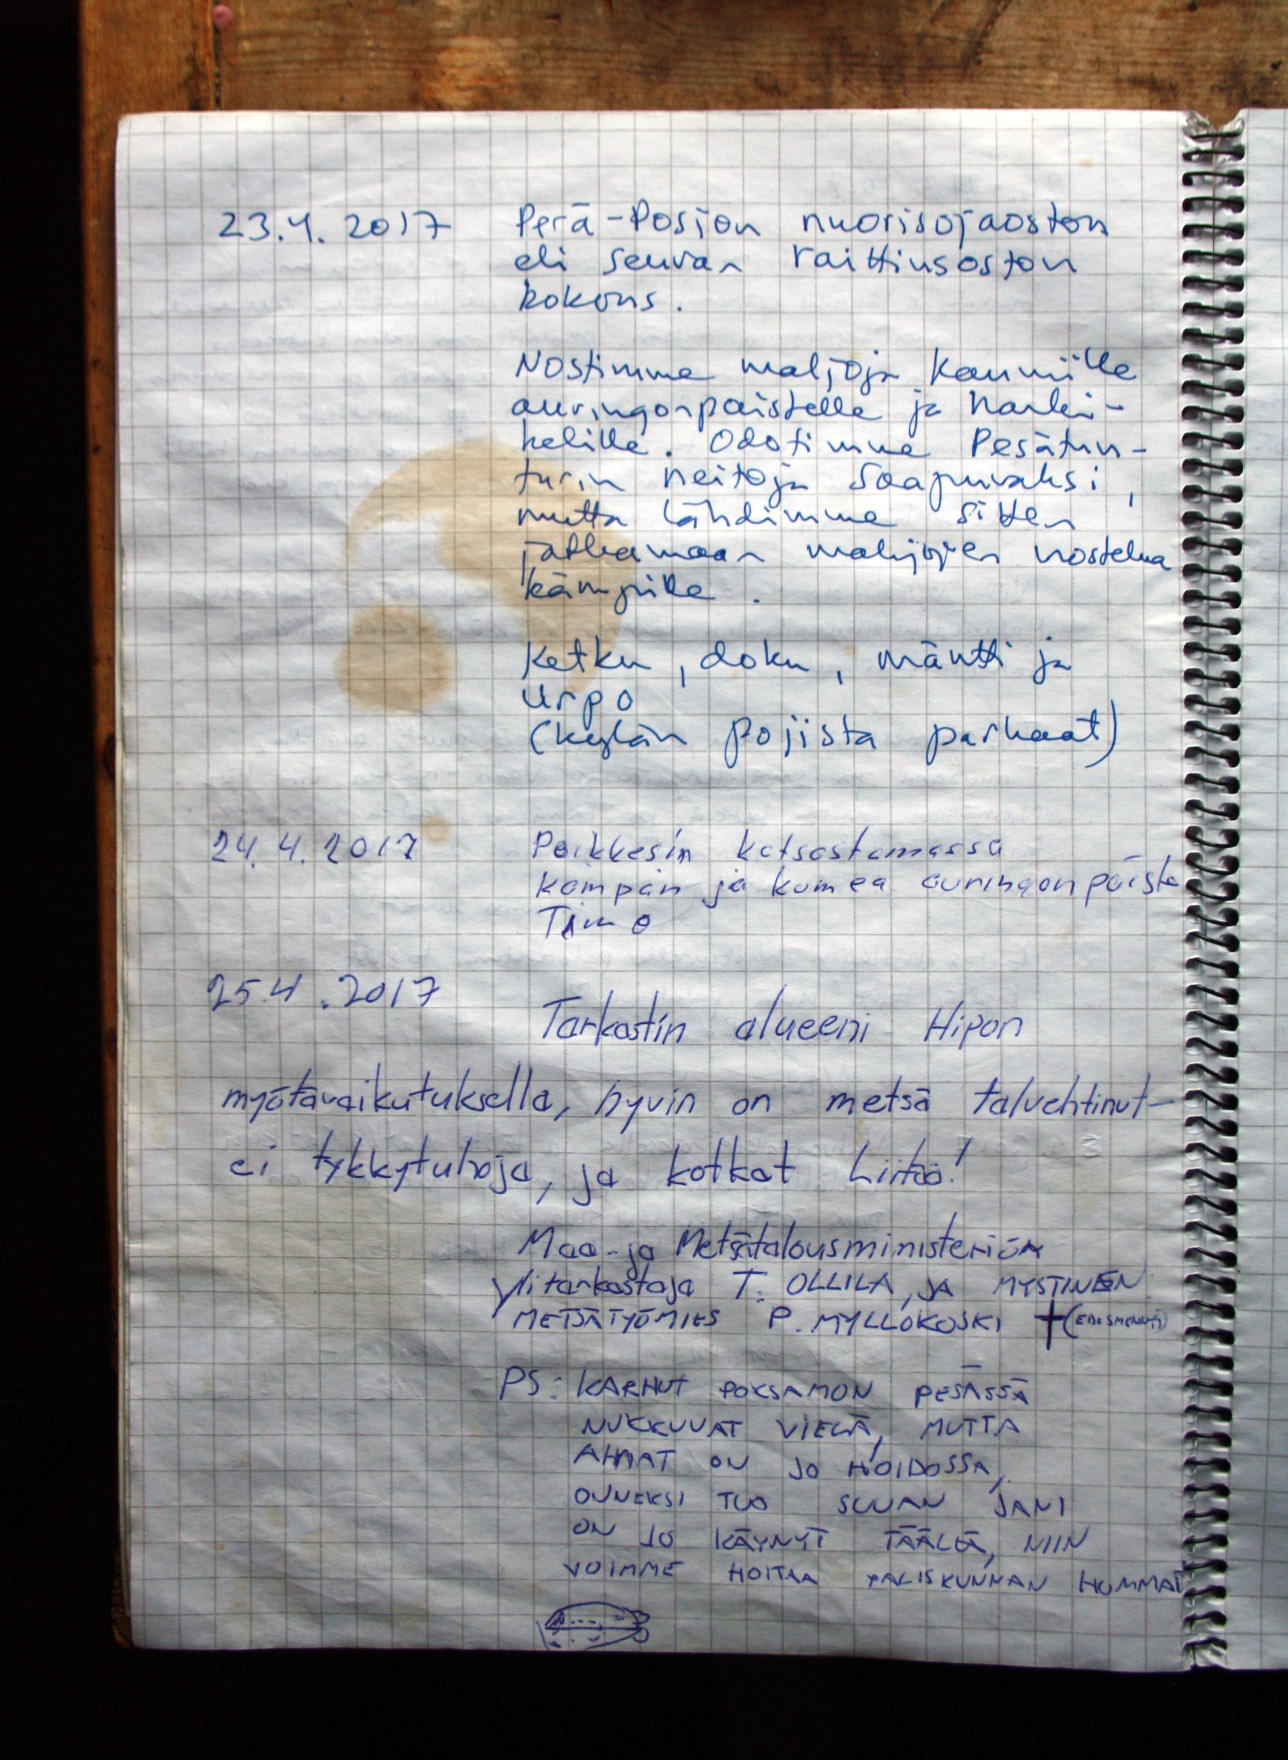 23.4.2017 Perä-Posion nuorisojaoston
eli seuran raittiusoston
kokous.
Nostimme maljoja kauniille
auringonpaisteelle ja hanki-
kelille. Odotimme Pesätun-
turin neitoja saapuvaksi,
mutta lähdimme sitten
jatkamaan maljojen nostelua
kämpille.
Ketku, doku, mäntti ja
urpo
(kylän pojista parhaat)
24.4.2017 Poikkesin katsastamassa
kämpän ja komea auringonpaiste
Timo
25.4.2017
Tarkastin alueeni Hipon
myötävaikutuksella, hyvin on metsä talvehtinut-
ei tykkytuhoja, ja kotkat liitää!
Maa- ja Metsätalousministeriön
ylitarkastaja T. OLLILA, JA MYSTINEN
METSÄTYÖMIES P. MYLLÖKOSKI
PS: KARHUT POKSAMON PESÄSSÄ
NUKKUVAT VIELÄ, MUTTA
AHMAT ON JO HOIDOSSA,
ONNEKSI TUO SUVAN JANI
ON JO KÄYNYT TÄÄLLÄ, NIIN
VOIMME HOITAA PALISKUNNAN HOMMAT